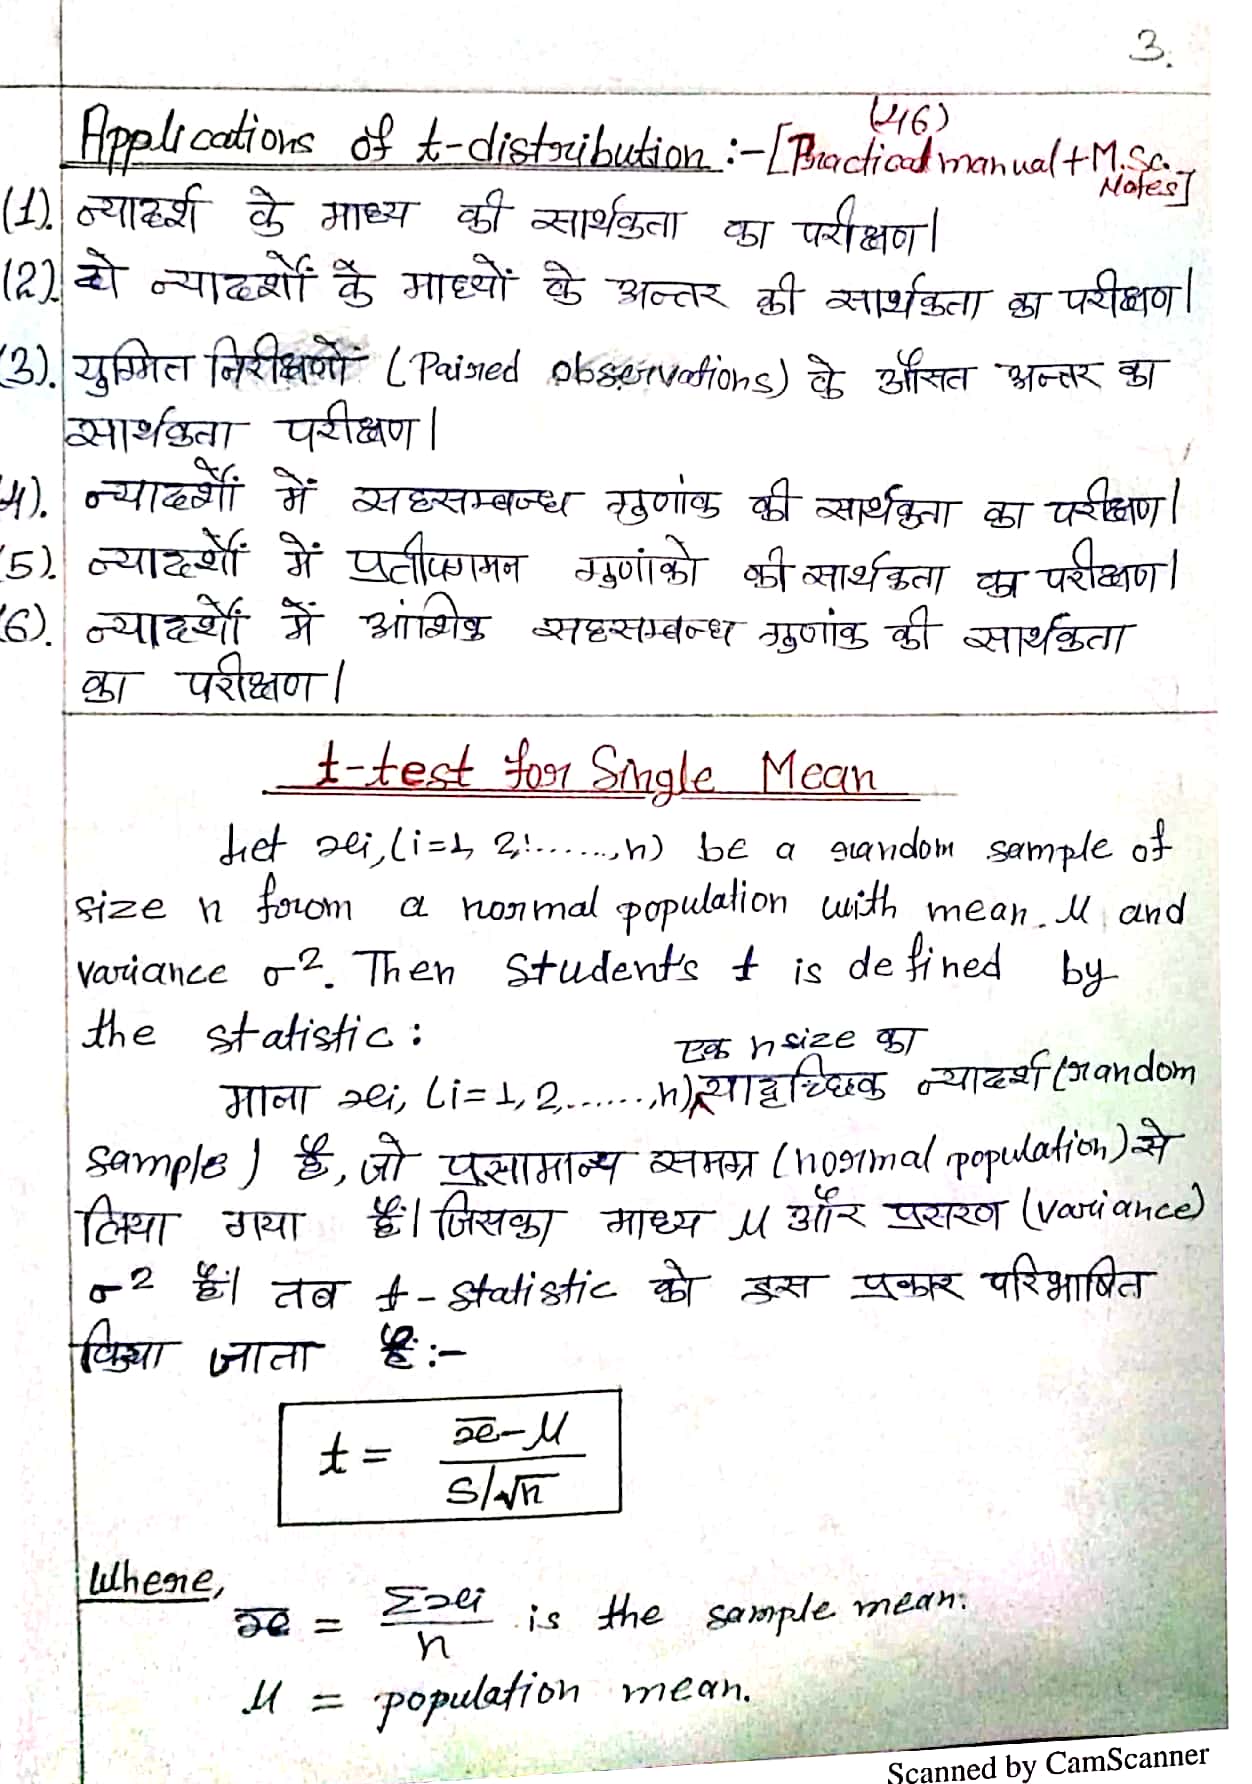 3.
(46)
Applications of t-distribution :- [Practical manual + M.Sc.
Notes]
(1). न्यादर्श के माध्य की सार्थकता का परीक्षण।
(2). दो न्यादर्शों के माध्यों के अन्तर की सार्थकता का परीक्षण।
(3). युग्मित निरीक्षणों (Paired observations) के औसत अन्तर का
सार्थकता परीक्षण।
(4). न्यादर्शों में सहसम्बन्ध गुणांक की सार्थकता का परीक्षण।
(5). न्यादर्शों में प्रतीपगमन गुणांको की सार्थकता का परीक्षण।
(6). न्यादर्शों में आंशिक सहसम्बन्ध गुणांक की सार्थकता
का परीक्षण।
t-test for Single Mean
Let xi, (i=1, 2,......,n) be a random sample of
size n from a normal population with mean μ and
variance σ². Then Student's t is defined by
the statistic :
एक n size का
माना xi, (i=1, 2,......,n) यादृच्छिक न्यादर्श (random
sample) है, जो प्रसामान्य समग्र (normal population) से
लिया गया है। जिसका माध्य μ और प्रसरण (variance)
σ² है। तब t-statistic को इस प्रकार परिभाषित
किया जाता है :-
t = x̄-μ / S/√n
Where,
x̄ = Σxi / n is the sample mean.
μ = population mean.
Scanned by CamScanner